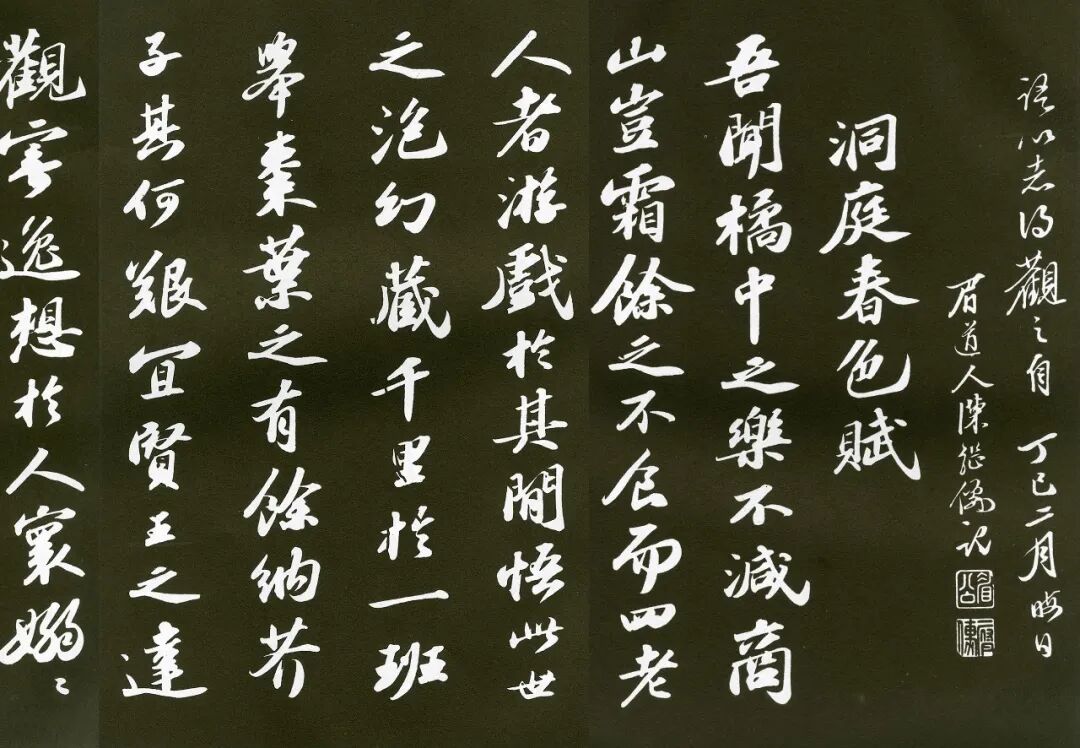 語以志得觀之自 丁巳二月晦日
眉道人陳繼儒記
眉公
洞庭春色賦
吾聞橘中之樂不減商
山豈霜餘之不食而四老
人者游戲於其閒悟此世
之泡幻藏千里於一班
舉棗葉之有餘納芥
子其何艱宜賢王之達
觀寄逸想於人寰嫋〻